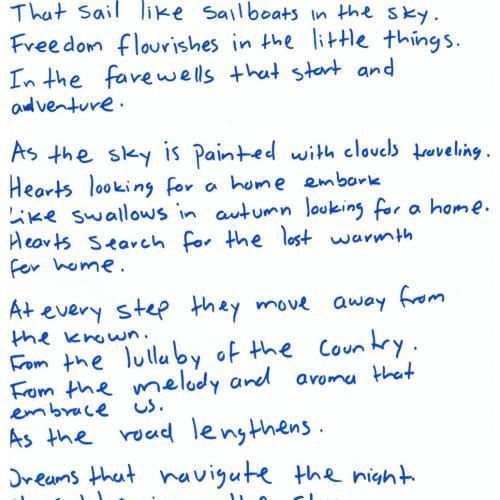 That sail like sailboats in the sky.
Freedom flourishes in the little things.
In the farewells that start and
adventure.
As the sky is painted with clouds traveling.
Hearts looking for a home embark
Like swallows in autumn looking for a home.
Hearts search for the lost warmth
for home.
At every step they move away from
the known.
From the lullaby of the country.
From the melody and aroma that
embrace us.
As the road lengthens.
Dreams that navigate the night.